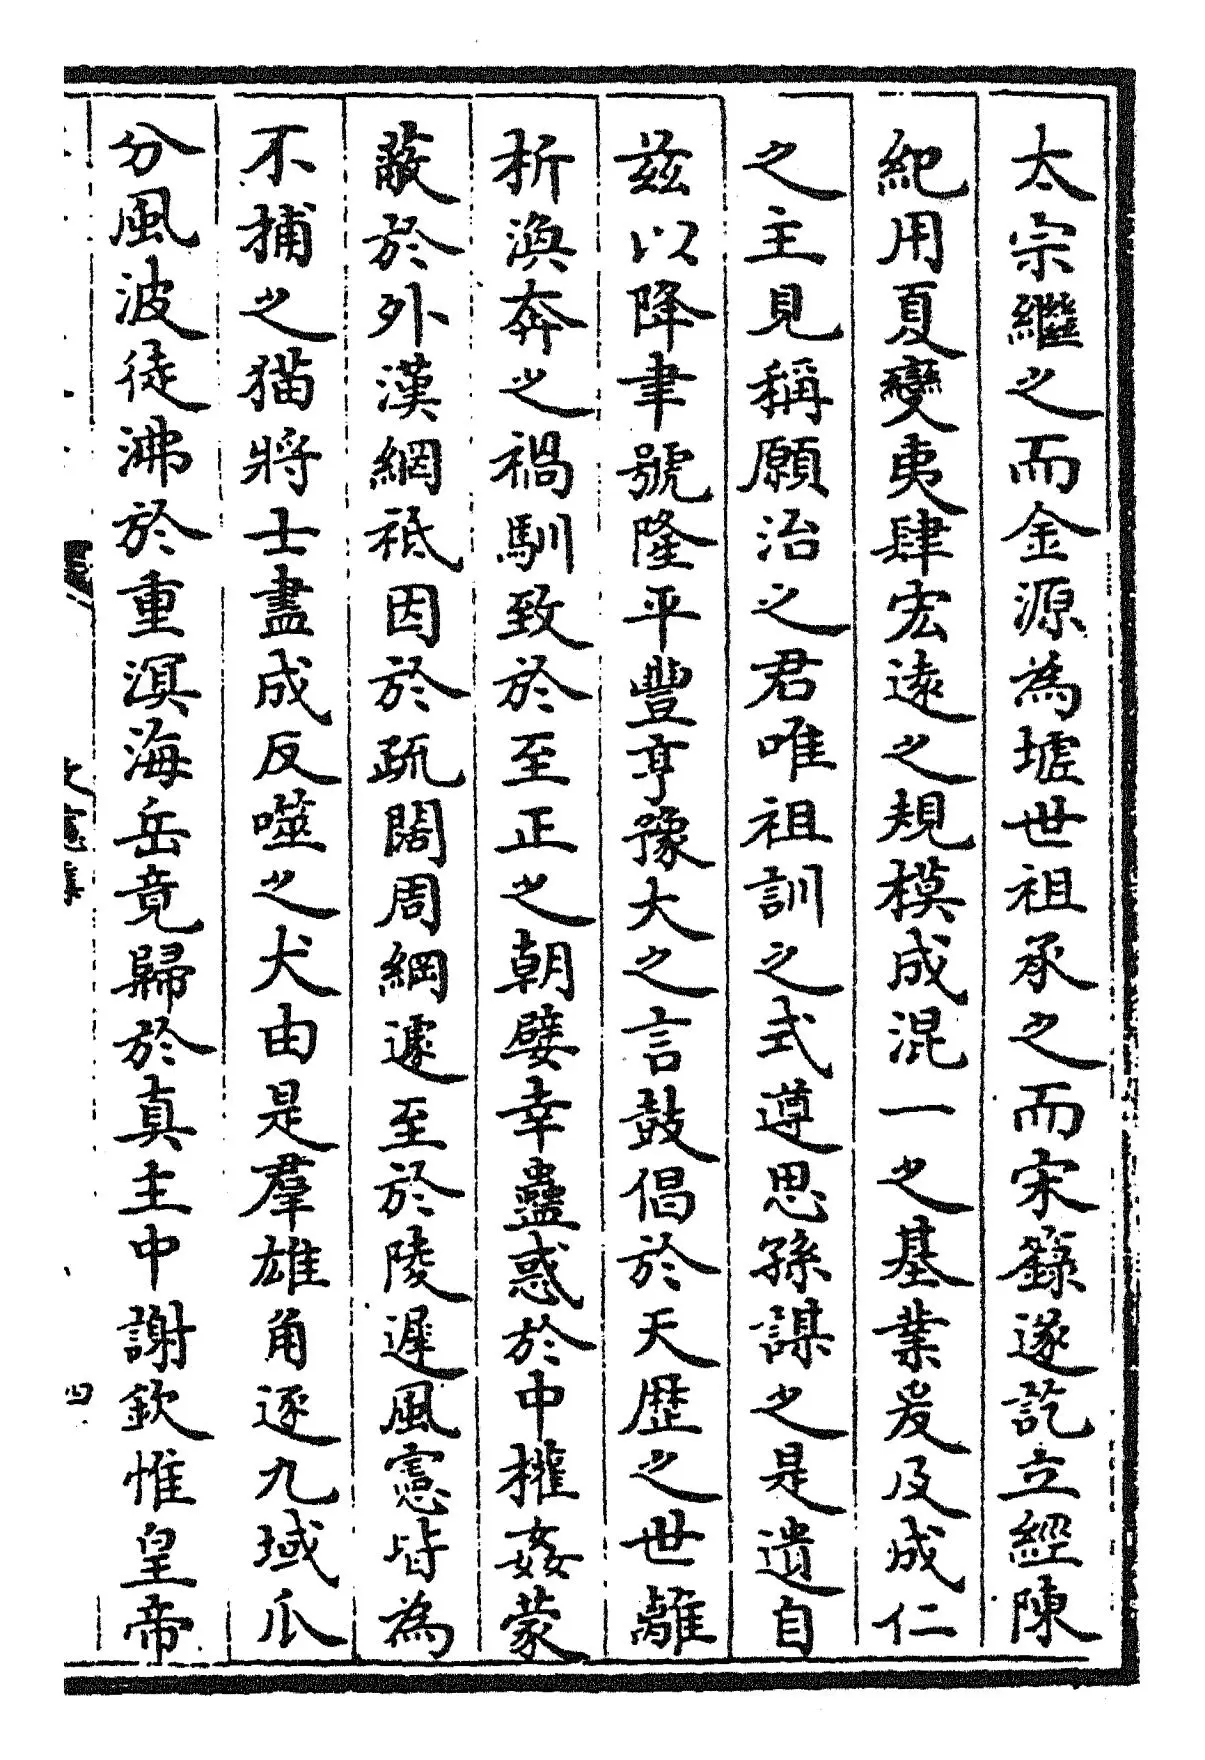 太宗繼之而金源為墟世祖承之而宋籙遂訖立經陳
紀用夏變夷肆宏遠之規模成混一之基業爰及成仁
之主見稱願治之君唯祖訓之式遵思孫謀之是遺自
茲以降聿號隆平豐亨豫大之言鼓倡於天歴之世離
析渙奔之禍馴致於至正之朝嬖幸蠱惑於中權姦蒙
蔽於外漢網祗因於疏闊周綱遽至於陵遲風憲皆為
不捕之猫將士盡成反噬之犬由是羣雄角逐九域瓜
分風波徒沸於重溟海岳竟歸於真主中謝欽惟皇帝
文憲集
四